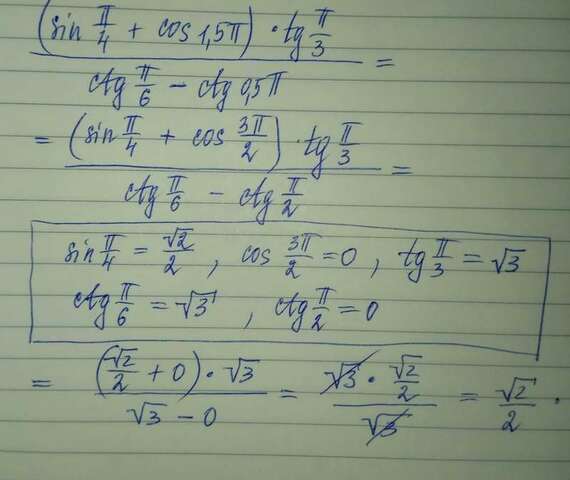 (sin π/4 + cos 1,5π) · tg π/3 / ctg π/6 − ctg 0,5π =
= (sin π/4 + cos 3π/2) · tg π/3 / ctg π/6 − ctg π/2 =
sin π/4 = √2/2 , cos 3π/2 = 0 , tg π/3 = √3
ctg π/6 = √3 , ctg π/2 = 0
= (√2/2 + 0) · √3 / √3 − 0 = √3 · √2/2 / √3 = √2/2 .